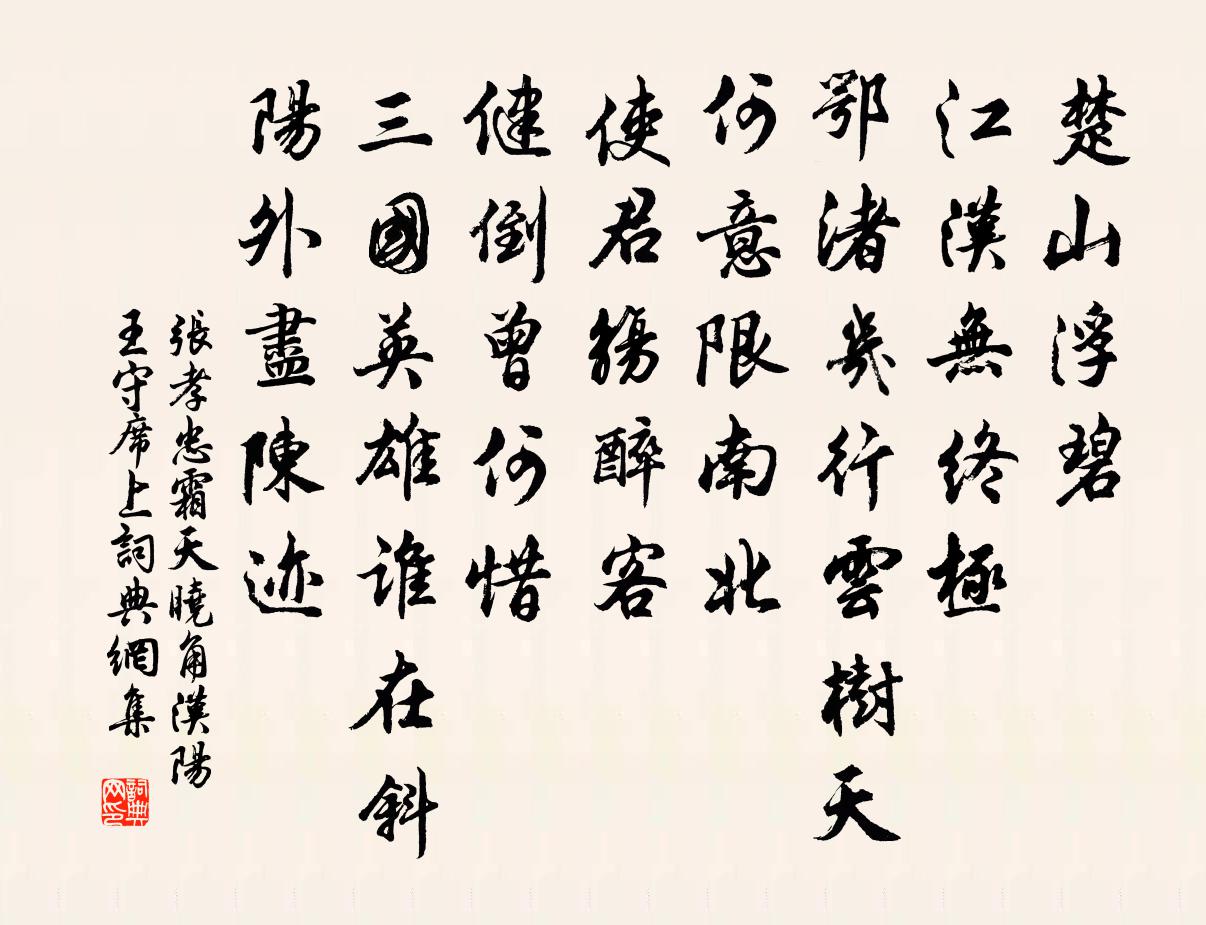 楚山浮碧
江漢無終極
鄂渚幾行雲樹天
何意限南北
使君觴醉客
健倒曾何惜
三國英雄誰在斜
陽外盡陳迹
張孝忠霜天曉角漢陽
王守席上詞典網集
詞典
网印